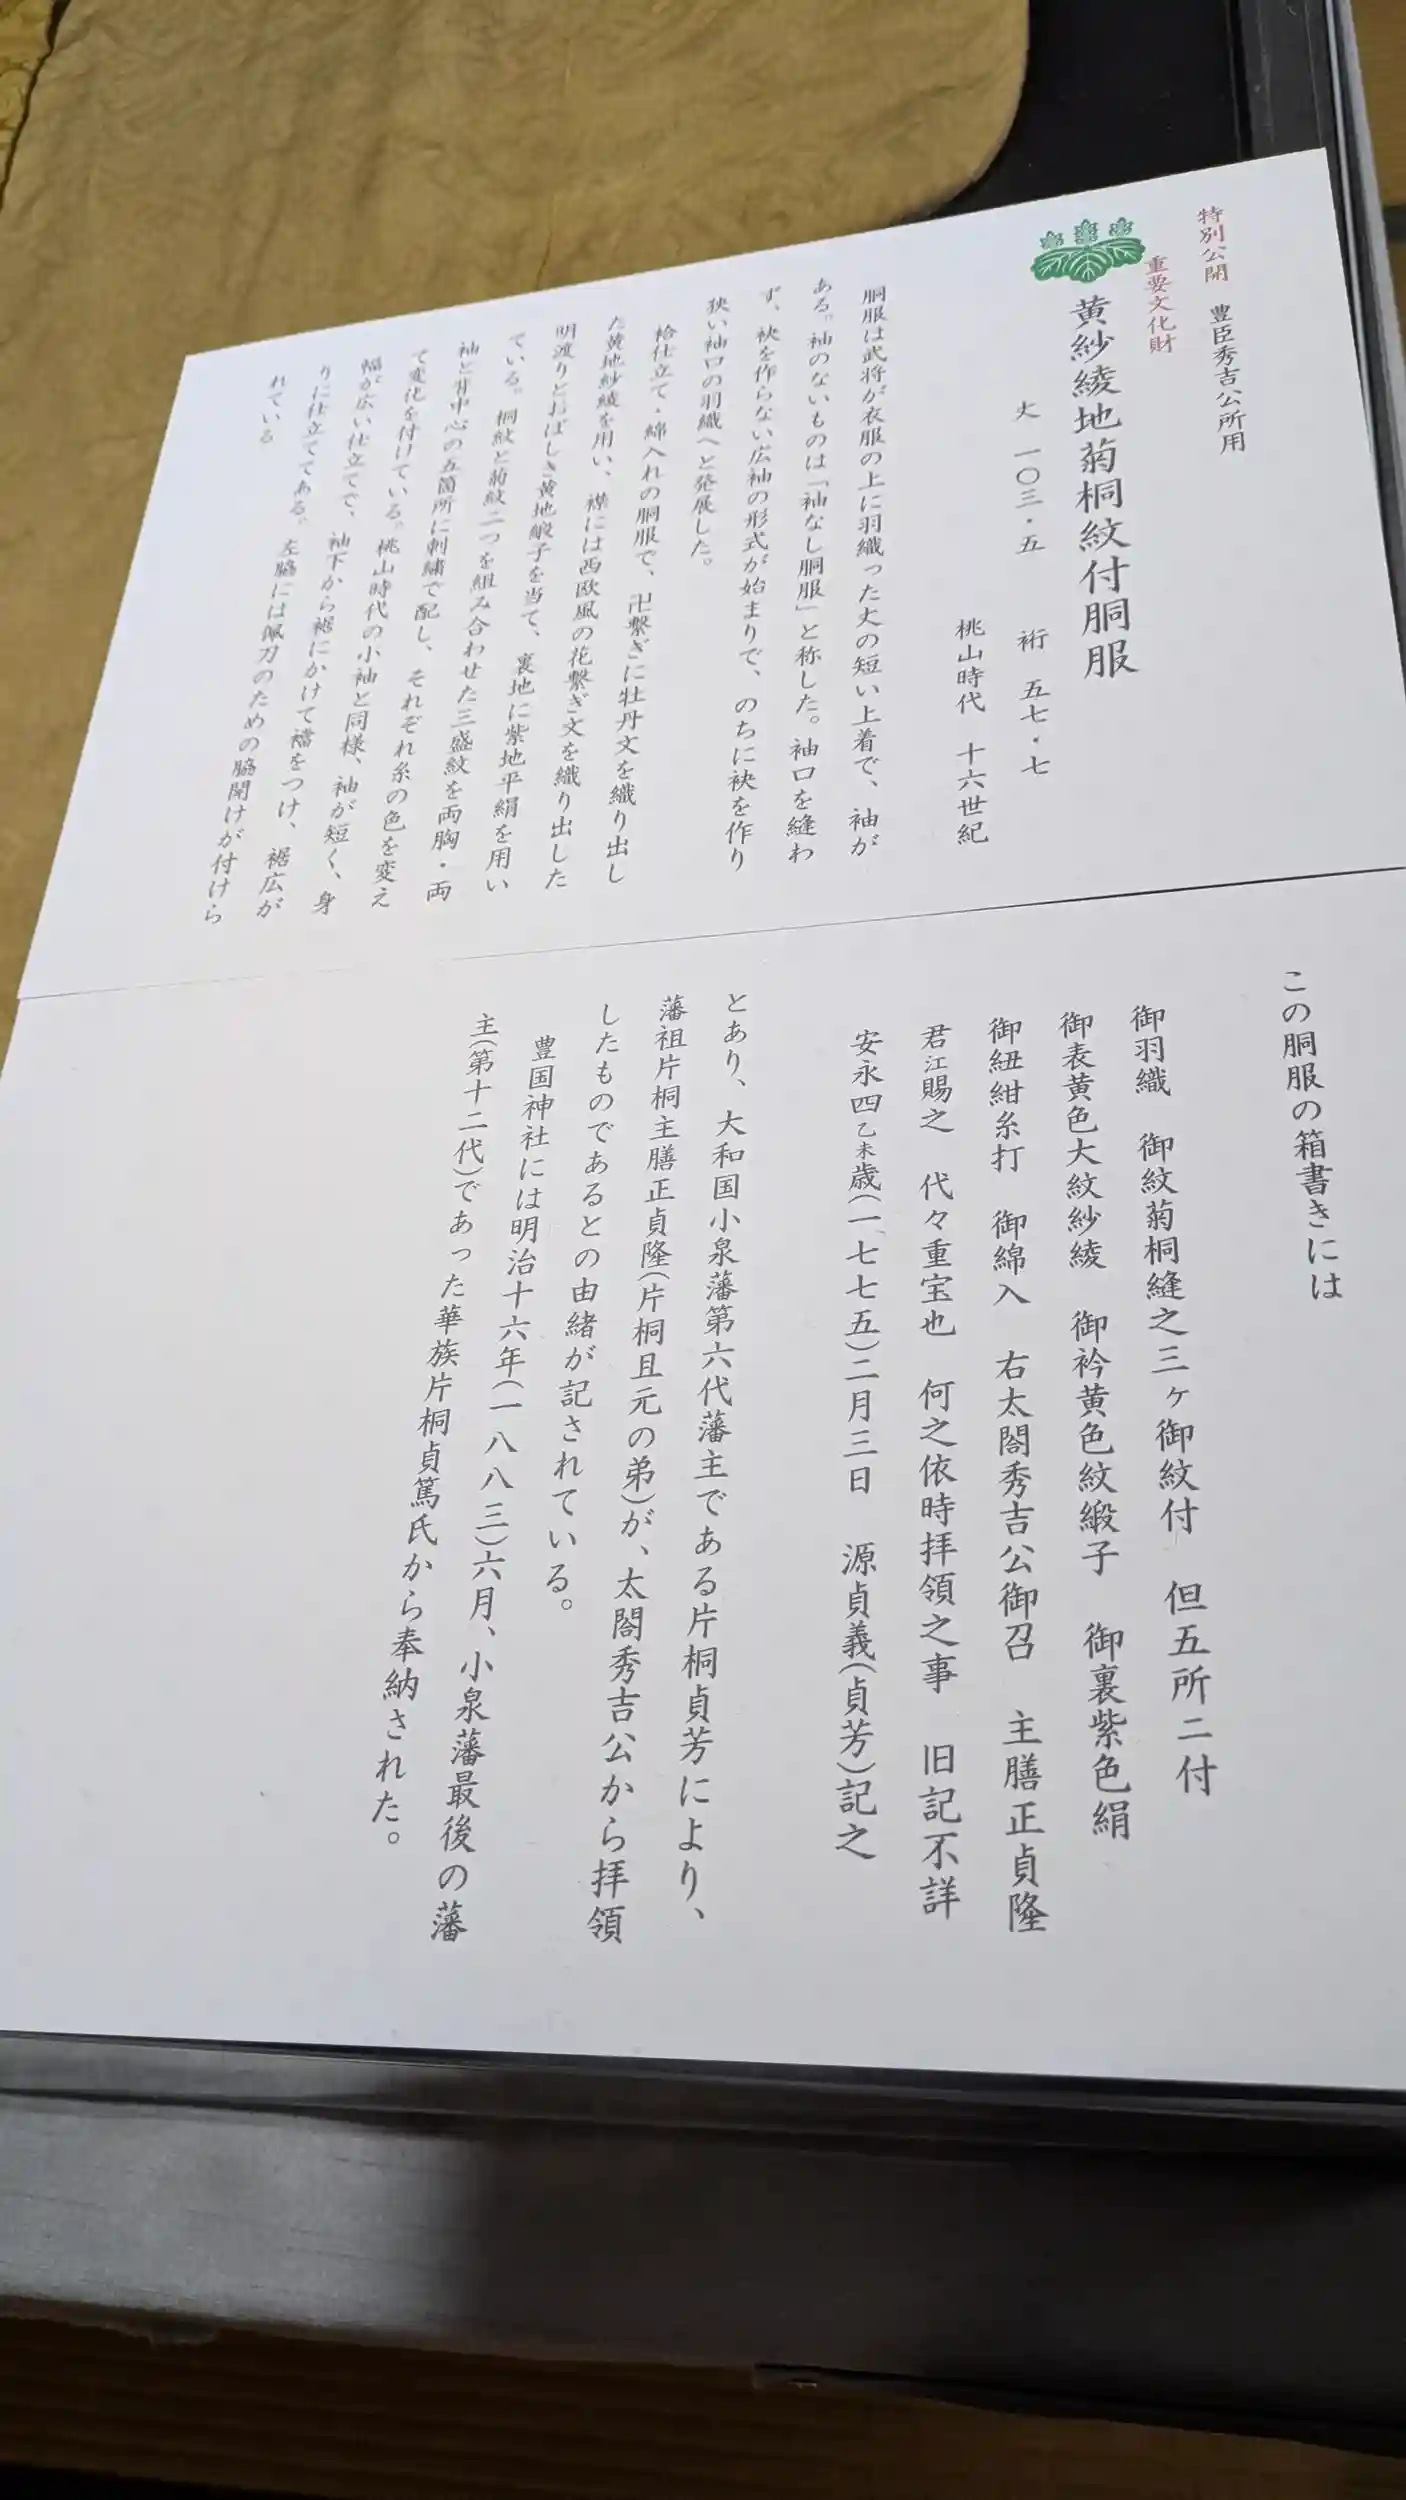 特別公開　豊臣秀吉公所用
重要文化財
黄紗綾地菊桐紋付胴服
丈　一〇三・五　　裄　五七・七
桃山時代　十六世紀
胴服は武将が衣服の上に羽織った丈の短い上着で、袖が
ある。袖のないものは「袖なし胴服」と称した。袖口を縫わ
ず、袂を作らない広袖の形式が始まりで、のちに袂を作り
狭い袖口の羽織へと発展した。
袷仕立て・綿入れの胴服で、卍繋ぎに牡丹文を織り出し
た黄地紗綾を用い、襟には西欧風の花繋ぎ文を織り出した
明渡りとおぼしき黄地緞子を当て、裏地に紫地平絹を用い
ている。桐紋と菊紋二つを組み合わせた三盛紋を両胸・両
袖と背中心の五箇所に刺繍で配し、それぞれ糸の色を変え
て変化を付けている。桃山時代の小袖と同様、袖が短く、身
幅が広い仕立てで、袖下から裾にかけて襠をつけ、裾広が
りに仕立ててある。左脇には佩刀のための脇開けが付けら
れている
この胴服の箱書きには
御羽織　御紋菊桐縫之三ヶ御紋付　但五所ニ付
御表黄色大紋紗綾　御衿黄色紋緞子　御裏紫色絹
御紐紺糸打　御綿入　右太閤秀吉公御召　主膳正貞隆
君江賜之　代々重宝也　何之依時拝領之事　旧記不詳
安永四乙未歳(一七七五)二月三日　源貞義(貞芳)記之
とあり、大和国小泉藩第六代藩主である片桐貞芳により、
藩祖片桐主膳正貞隆(片桐且元の弟)が、太閤秀吉公から拝領
したものであるとの由緒が記されている。
豊国神社には明治十六年(一八八三)六月、小泉藩最後の藩
主(第十二代)であった華族片桐貞篤氏から奉納された。